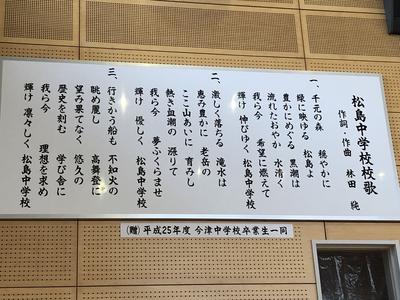 松島中学校校歌
作詞・作曲　林田　純
一、千元の森　穏やかに
緑に映ゆる　松島よ
豊かにめぐる　黒潮は
流れたおやか　水清く
我ら今　希望に燃えて
輝け　伸びゆく　松島中学校
二、激しく落ちる　滝水は
恵み豊かに　老岳の
ここ山あいに　育みし
熱き血潮の　漲りて
我ら今　夢ふくらませ
輝け　優しく　松島中学校
三、行きかう船も　不知火の
眺め麗し　高舞登に
望み果てなく　悠久の
歴史を刻む　学び舎に
我ら今　理想を求め
輝け　凛々しく　松島中学校
(贈) 平成25年度 今津中学校卒業生一同